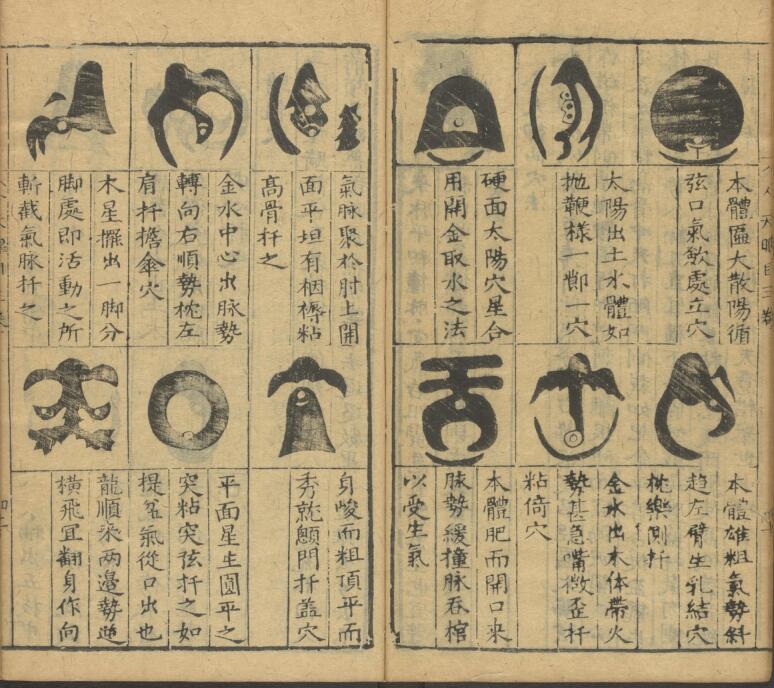 本體區大散陽循
弦口氣歛處立穴
太陽出土水體如
抛鞭樣一節一穴
硬面太陽穴星合
用開金取水之法
本體雄粗氣勢斜
趋左臂生乳結穴
枕樂側扦
金水出木体帶火
勢甚急嘴微歪扦
粘倚穴
本體肥而開口来
脉勢緩撞脉吞棺
以受生氣
氣脉聚於肘上開
面平坦有裀褥粘
高骨扦之
金水中心出脉勢
轉向右順勢枕左
肩扦擔傘穴
木星擺出一脚分
脚處即活動之所
斬截氣脉扦之
身峻而粗頂平而
秀就顖門扦盖穴
平面星生圓平之
突粘突弦扦之如
提盆氣從口出也
龍順來两邉勢迯
横飛宜翻身作向